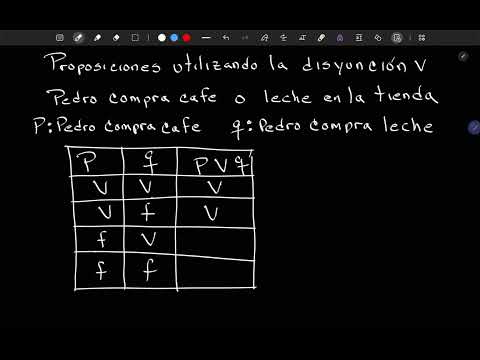 Proposiciones utilizando la disyunción V
Pedro compra cafe o leche en la tienda
P: Pedro compra cafe q: Pedro compra leche
P q P V q
V V V
V f V
f V
f f